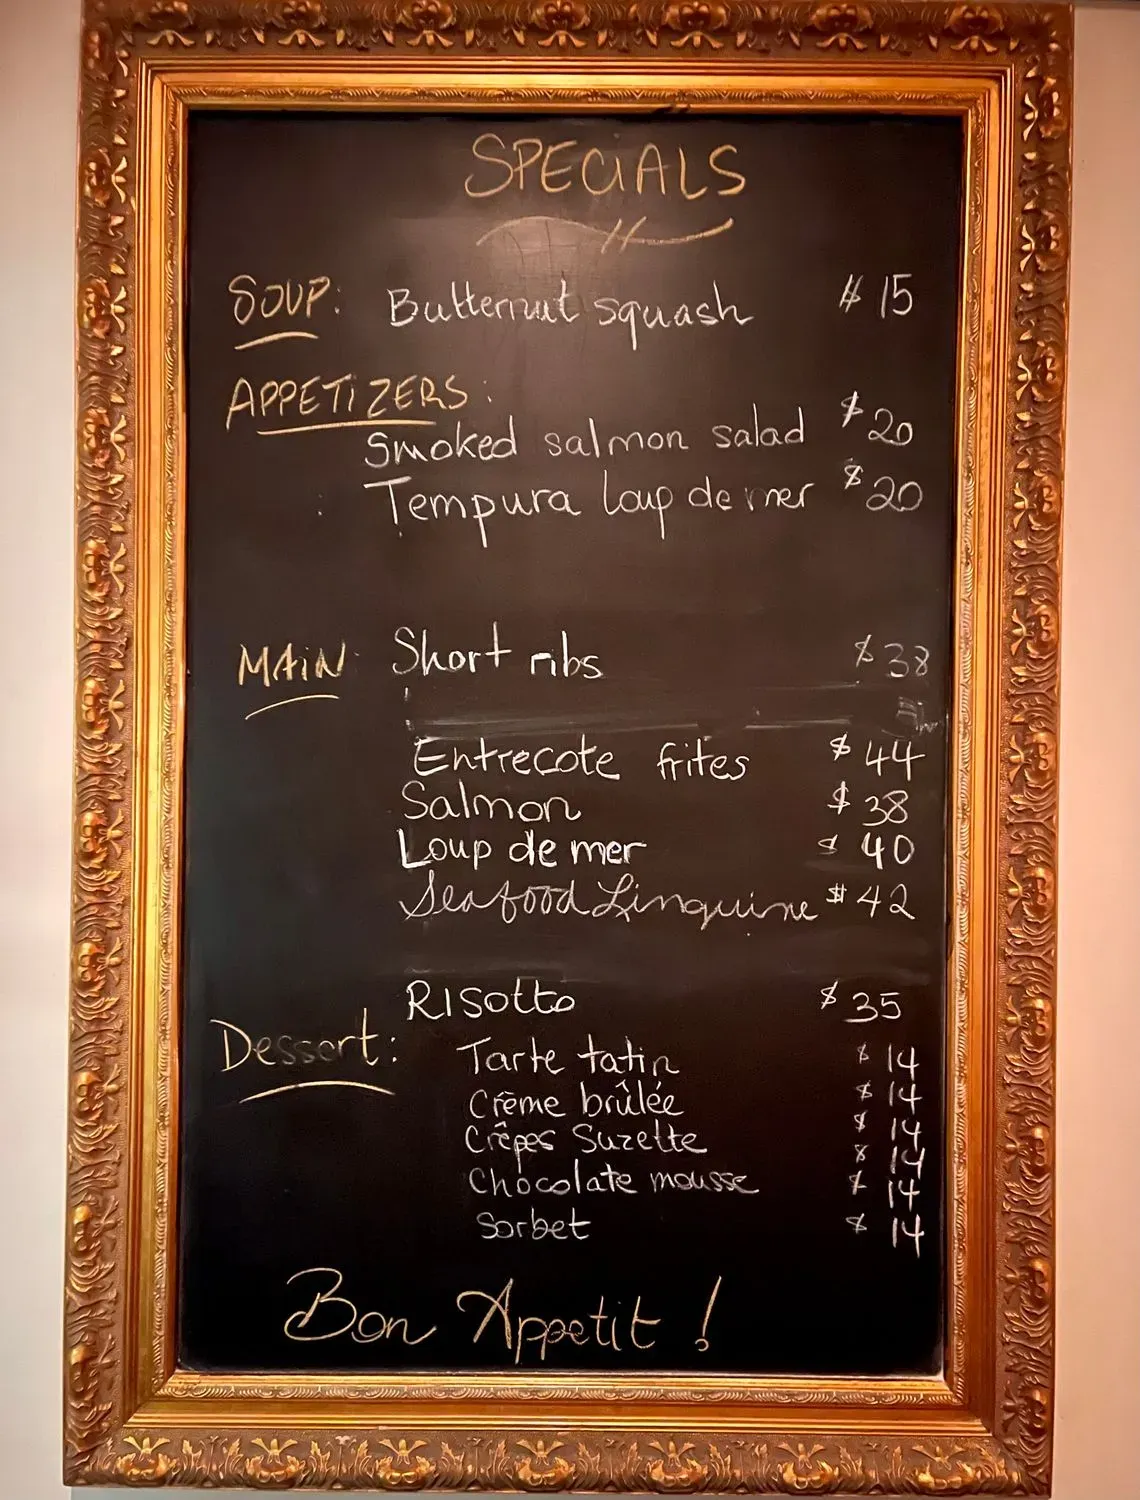 SPECIALS
SOUP: Butternut squash $15
APPETIZERS:
Smoked salmon salad $20
Tempura loup de mer $20
MAIN: Short ribs $38
Entrecote frites $44
Salmon $38
Loup de mer $40
Seafood Linguine $42
RISOTTO $35
Dessert:
Tarte tatin $14
Crème brûlée $14
Crêpes Suzette $14
$14
Chocolate mousse $14
Sorbet $14
Bon Appetit !